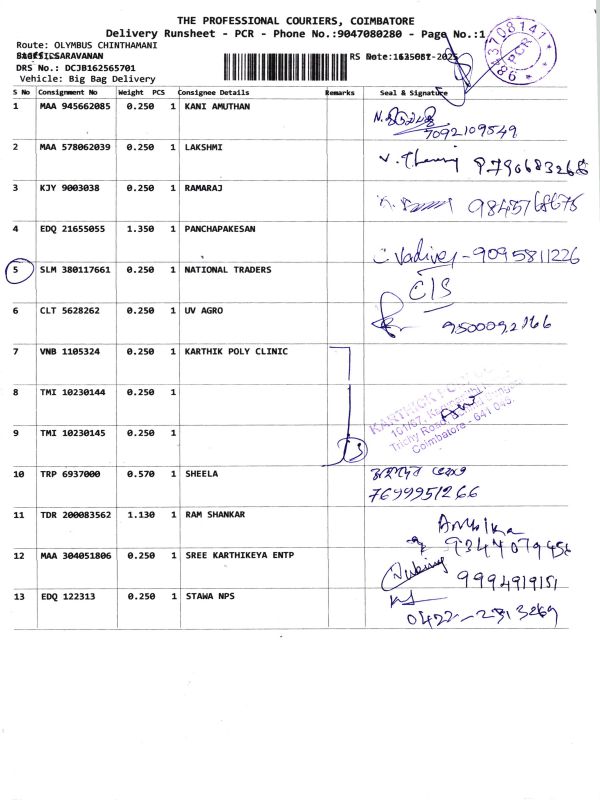 THE PROFESSIONAL COURIERS, COIMBATORE
Delivery Runsheet - PCR - Phone No.:9047080280 - Page No.:1
Route: OLYMBUS CHINTHAMANI
SARAVANAN
DRS No.: DCJB162565701
Vehicle: Big Bag Delivery
43708141
PCR
S No Consignment No Weight PCS Consignee Details Remarks Seal & Signature
1 MAA 945662085 0.250 1 KANI AMUTHAN
7092109549
2 MAA 578062039 0.250 1 LAKSHMI
8790683268
3 KJY 9003038 0.250 1 RAMARAJ
9845768675
4 EDQ 21655055 1.350 1 PANCHAPAKESAN
C. Vadivel - 9095811226
5 SLM 380117661 0.250 1 NATIONAL TRADERS
C/S
6 CLT 5628262 0.250 1 UV AGRO
9500092166
7 VNB 1105324 0.250 1 KARTHIK POLY CLINIC
8 TMI 10230144 0.250 1
KARTHICK
101/67,
Trichy Road
Coimbatore - 641
9 TMI 10230145 0.250 1
3
10 TRP 6937000 0.570 1 SHEELA
7699951266
11 TDR 200083562 1.130 1 RAM SHANKAR
Ambika
9344079456
12 MAA 304051806 0.250 1 SREE KARTHIKEYA ENTP
9994919151
13 EDQ 122313 0.250 1 STAWA NPS
0422-2313269